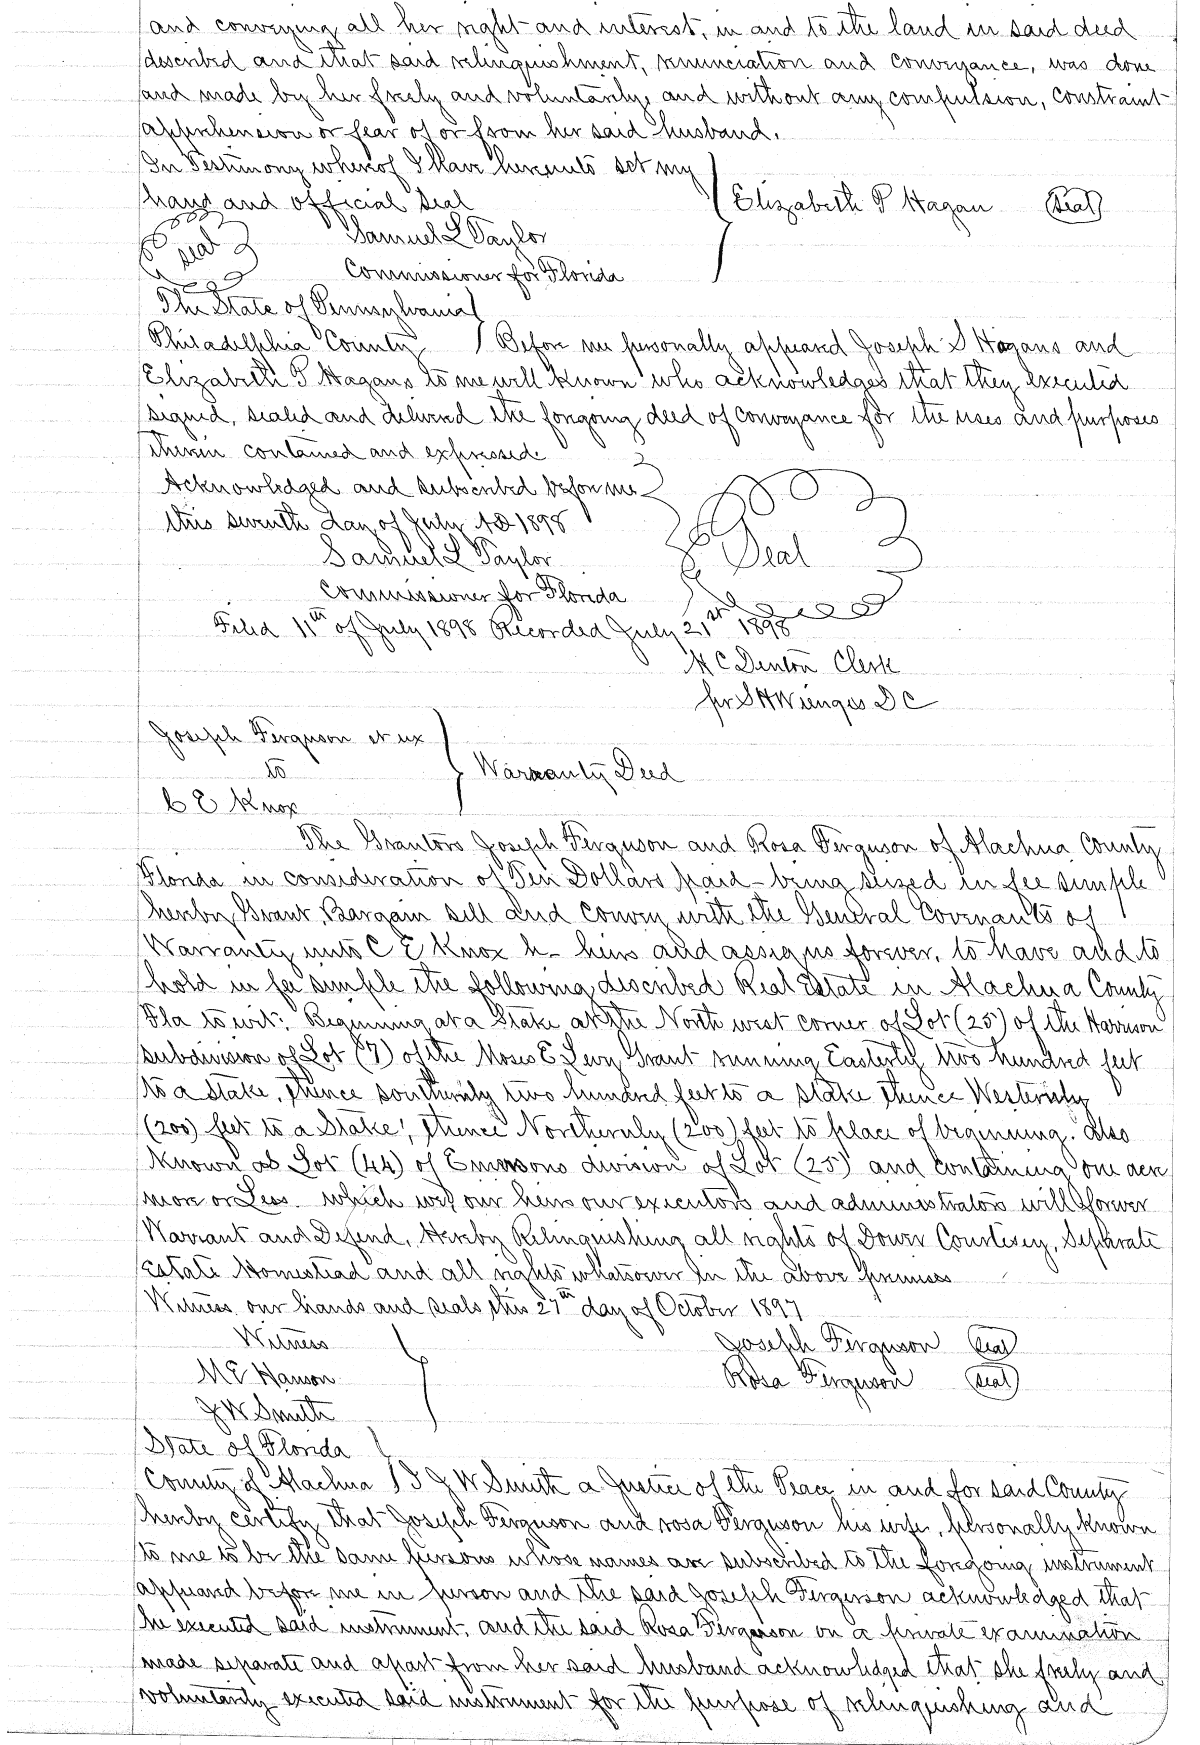 and conveying all her right and interest, in and to the land in said deed
described and that said relinquishment, renunciation and conveyance, was done
and made by her freely and voluntarily, and without any compulsion, constraint
apprehension or fear of or from her said husband.
In Testimony whereof I have hereunto set my
hand and official seal
Elizabeth P Hagan (Seal)
Seal
Samuel L Taylor
Commissioner for Florida
The State of Pennsylvania
Philadelphia County Before me personally appeared Joseph S Hagans and
Elizabeth P Hagans to me well known who acknowledges that they executed
signed, sealed and delivered the foregoing deed of conveyance for the uses and purposes
therein contained and expressed
Acknowledged and subscribed before me
this seventh day of July AD 1898
Seal
Samuel L Taylor
Commissioner for Florida
Filed 11th of July 1898 Recorded July 21st 1898
H C Denton Clerk
per S H Wienges D C
Joseph Ferguson et ux
to
C E Knox
Warranty Deed
The Grantors Joseph Ferguson and Rosa Ferguson of Alachua County
Florida in consideration of Ten Dollars paid - being seized in fee simple
hereby Grant, Bargain sell and convey with the General Covenants of
Warranty unto C E Knox h- heirs and assigns forever, to have and to
hold in fee simple the following described Real Estate in Alachua County
Fla to wit: Beginning at a Stake at the North west corner of Lot (25) of the Harrison
subdivision of Lot (7) of the Moses E Levy Grant running Easterly two hundred feet
to a stake, thence southernly two hundred feet to a stake thence Westernly
(200) feet to a Stake, thence Northernly (200) feet to place of beginning. Also
known as Lot (44) of Emersons division of Lot (25) and containing one acre
more or Less which we our heirs our executors and administrators will forever
Warrant and Defend, Hereby Relinquishing all rights of Dower Courtesey, Separate
Estate Homestead and all rights whatsoever in the above premises
Witness our hands and seals this 27th day of October 1897
Witness
Joseph Ferguson (Seal)
M E Hanson
Rosa Ferguson (Seal)
J W Smith
State of Florida
County of Alachua I J W Smith a Justice of the Peace in and for said County
hereby certify that Joseph Ferguson and rosa Ferguson his wife, personally known
to me to be the same persons whose names are subscribed to the foregoing instrument
appeared before me in person and the said Joseph Ferguson acknowledged that
he executed said instrument, and the said Rosa Ferguson on a private examination
made separate and apart from her said husband acknowledged that she freely and
voluntarily executed said instrument for the purpose of relinquishing and